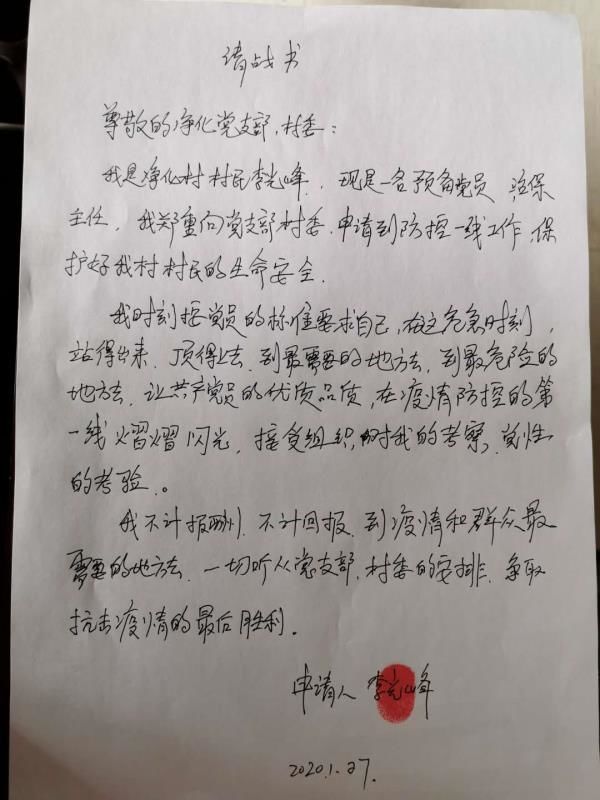 请战书
尊敬的净化党支部、村委：
我是净化村村民李光峰，现是一名预备党员，治保
主任，我郑重向党支部村委，申请到防控一线工作，保
护好我村村民的生命安全.
我时刻按党员的标准要求自己，在这危急时刻，
站得出来，顶得上去，到最需要的地方去，到最危险的
地方去，让共产党员的优质品质，在疫情防控的第
一线熠熠闪光，接受组织对我的考察，党性
的考验。
我不计报酬，不计回报，到疫情和群众最
需要的地方去，一切听从党支部、村委的安排，争取
抗击疫情的最后胜利.
申请人 李光峰
2020.1.27.